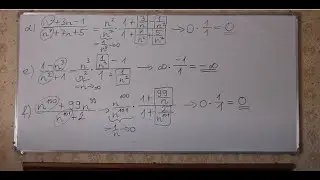 d) n²+3n-1 / n³+7n+5 = n²/n³ · 1+3/n-1/n² / 1+7/n²+5/n³ → 0 · 1/1 = 0
1/n → 0
e) 1-n³ / n²+1 = n³/n² · 1/n³ - 1 / 1+1/n² → ∞ · -1/1 = -∞
= n → ∞
f) n¹⁰⁰+99n⁹⁹ / n¹⁰¹+2 = n¹⁰⁰/n¹⁰¹ · 1+99/n / 1+2/n¹⁰¹ → 0 · 1/1 = 0
= 1/n → 0